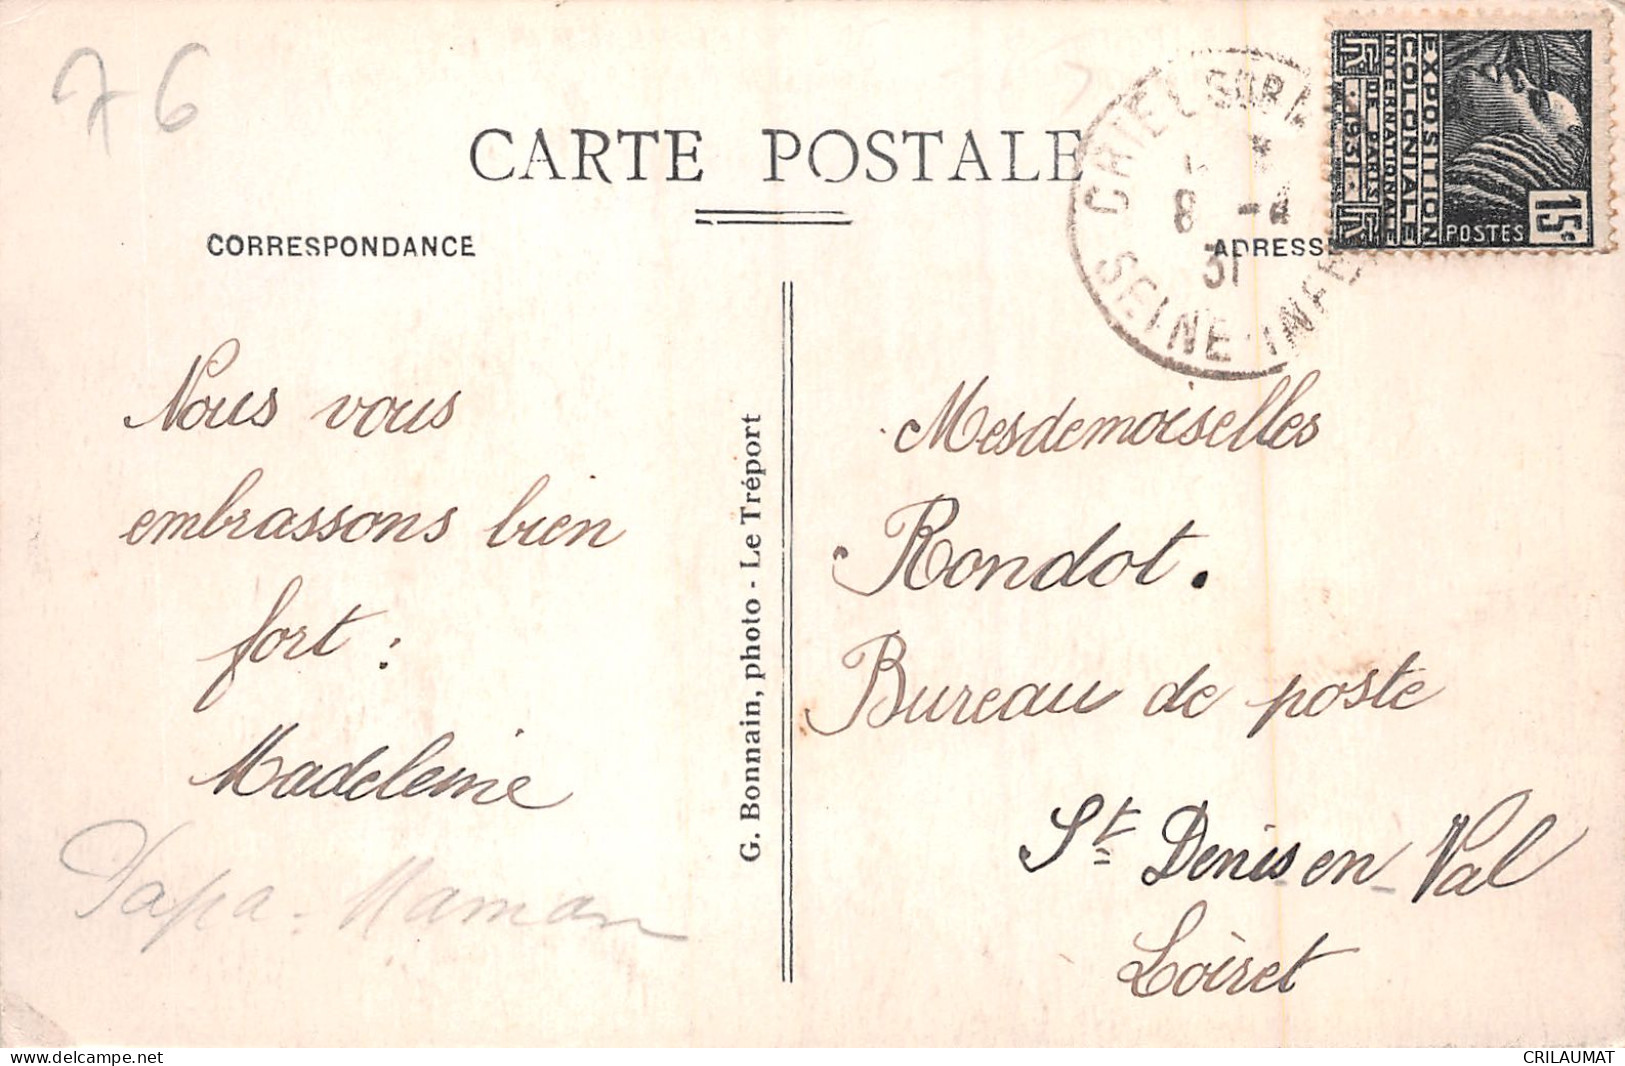 76
CARTE POSTALE
CORRESPONDANCE
ADRESSE
CRIEL SUR M
8 -4
31
SEINE-INFER
EXPOSITION
COLONIALE
INTERNATIONALE
DE PARIS
RF · 1931 · RF
POSTES 15c
Nous vous
embrassons bien
fort :
Madeleine
Papa - Maman
G. Bonnain, photo - Le Tréport
Mesdemoiselles
Rondot.
Bureau de poste
St Denis en Val
Loiret
www.delcampe.net
CRILAUMAT